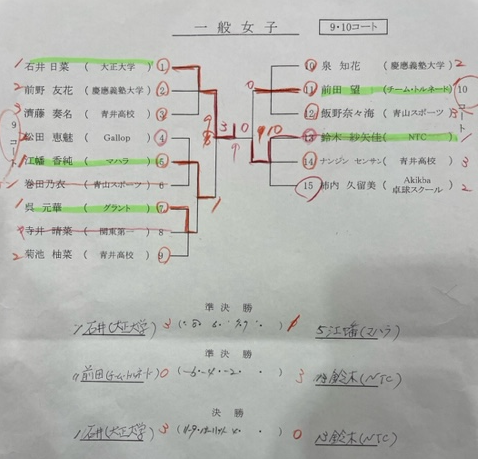 一般女子
9・10コート
1 石井 日菜 ( 大正大学 ) 1
2 前野 友花 ( 慶應義塾大学 ) 2
3 濟藤 奏名 ( 青井高校 ) 3
松田 恵魅 ( Gallop ) 4
1 江幡 香純 ( マハラ ) 5
巻田乃衣 ( 青山スポーツ ) 6
1 呉 元華 ( グラント ) 7
寺井 晴菜 ( 関東第一 ) 8
2 菊池 柚菜 ( 青井高校 ) 9
9コート
10 泉 知花 ( 慶應義塾大学 ) 2
11 前田 望 ( チーム・トルネード )
12 飯野奈々海 ( 青山スポーツ ) 3
13 鈴木 紗矢佳 ( NTC ) 1
14 ナンジン センサン ( 青井高校 ) 3
15 柿内 久留美 ( Akikba 卓球スクール ) 2
10コート
準決勝
1石井(大正大学) 3 0 5江幡(マハラ)
準決勝
11前田(チーム・トルネード) 0 (-6・-4・-2・ ・ ) 3 13鈴木(NTC)
決勝
1石井(大正大学) 3 0 13鈴木(NTC)